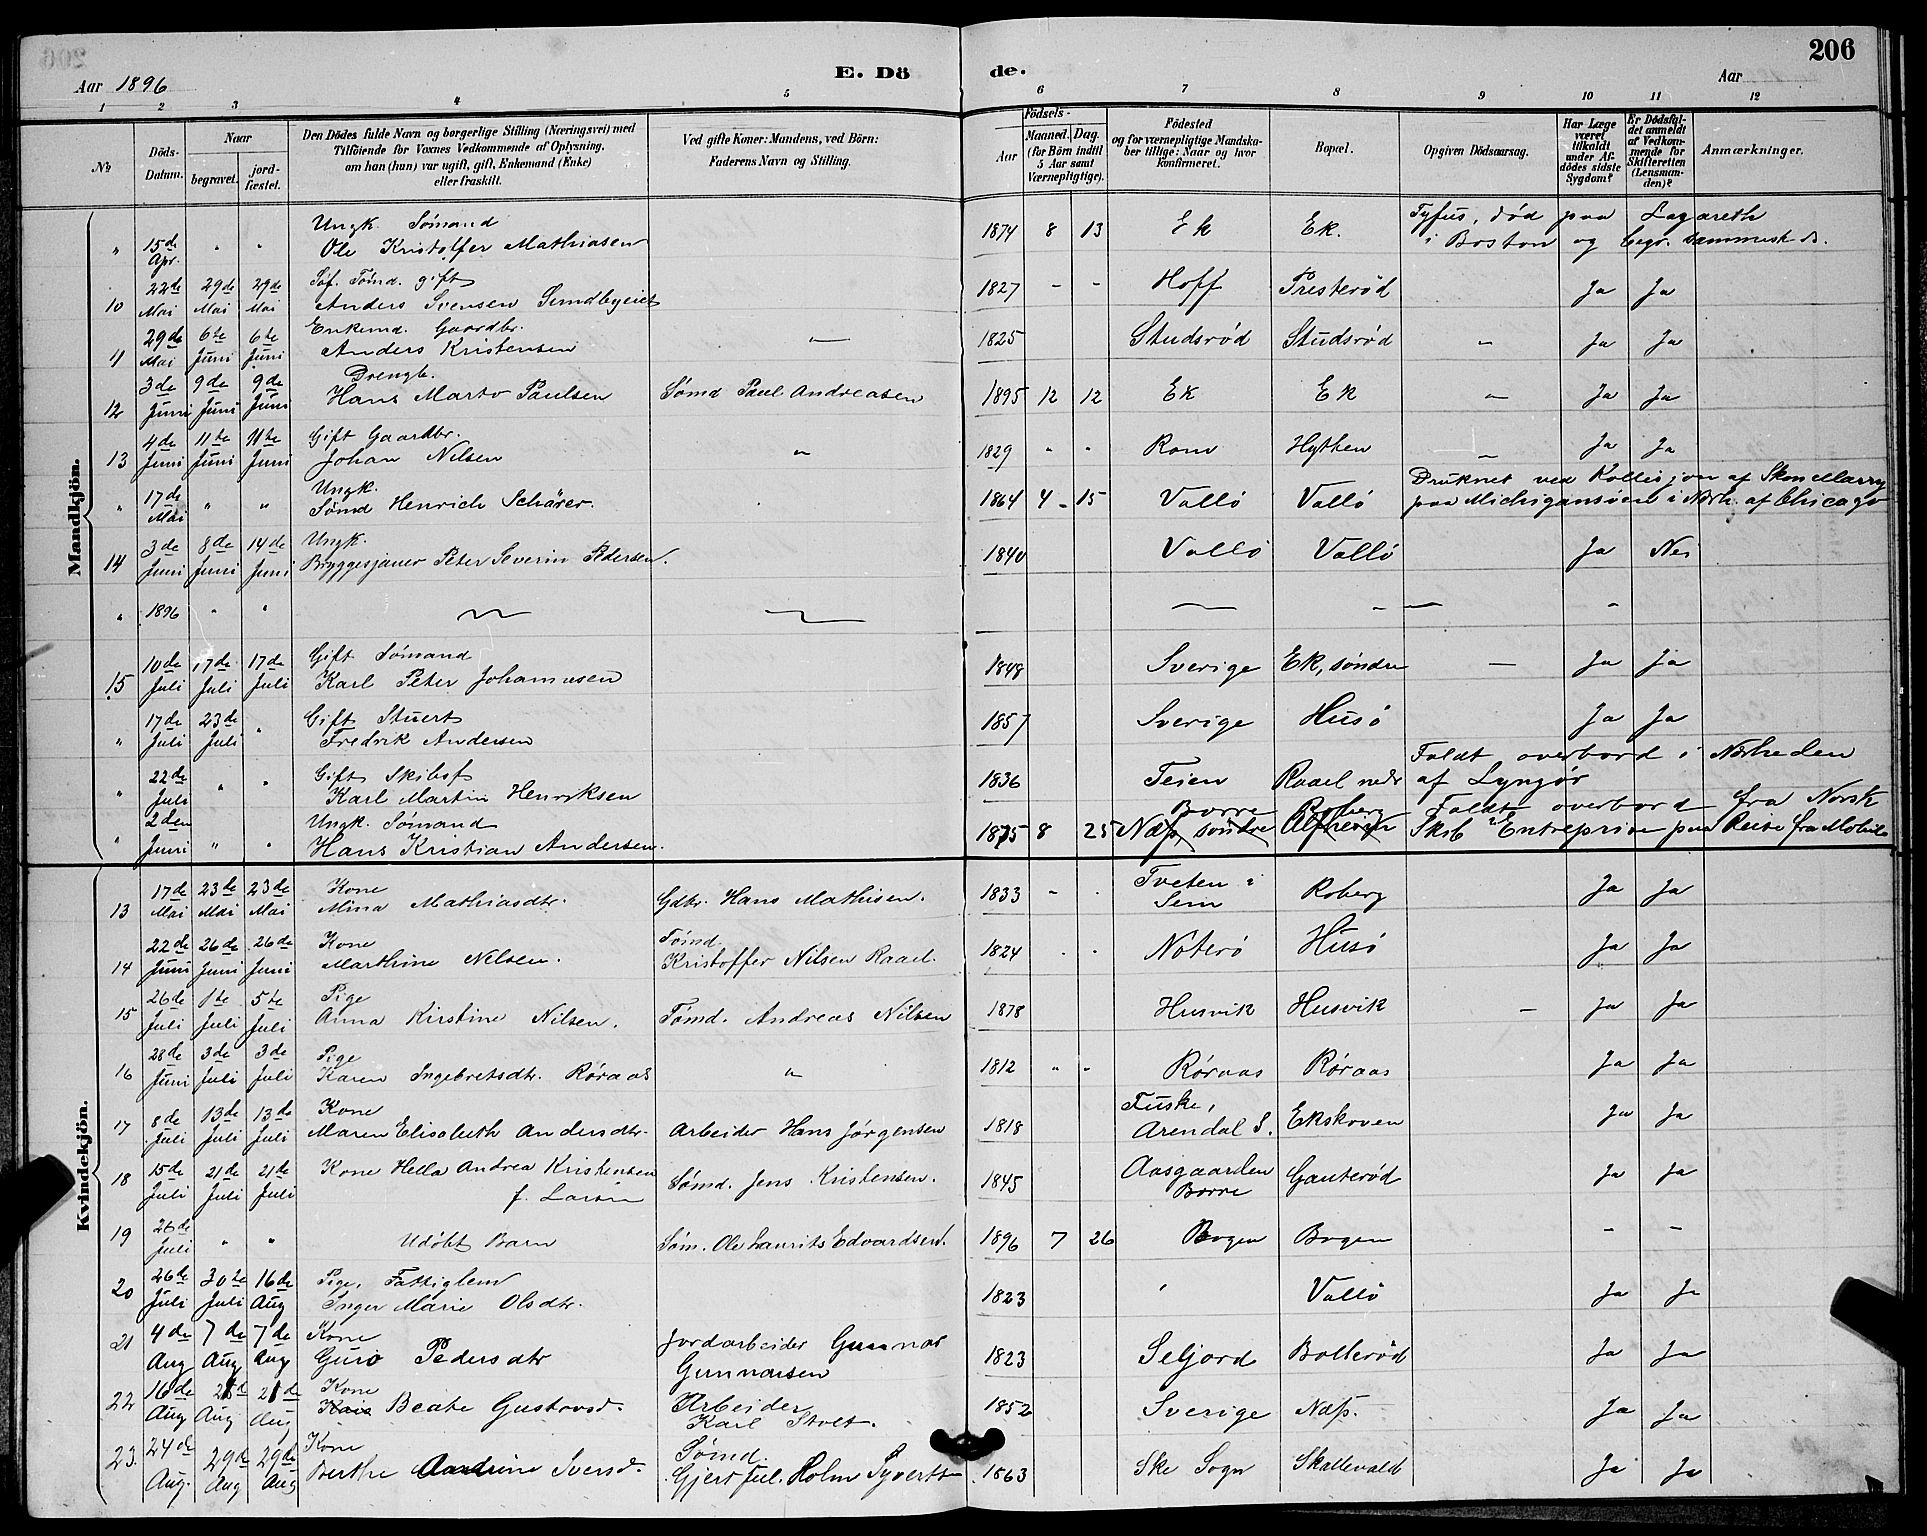 206
Aar 1896
E. Dö
de.
Aar
1 2 3 4 5 6 7 8 9 10 11 12
No.
Döds-Datum.
Naar
begravet.
jord-fæstet.
Den Dödes fulde Navn og borgerlige Stilling (Næringsvei) med
Tilföiende for Voxnes Vedkommende af Oplysning,
om han (hun) var ugift, gift, Enkemand (Enke)
eller fraskilt.
Ved gifte Koner: Mandens, ved Börn:
Faderens Navn og Stilling.
Födsels-
Aar
Maaned. Dag.
(for Börn indtil
5 Aar samt
Værnepligtige).
Födested
og for værnepligtige Mandska-
ber tillige: Naar og hvor
konfirmeret.
Bopæl.
Opgiven Dödsaarsag.
Har Læge
været
tilkaldt
under Af-
dödes sidste
Sygdom?
Er Dödsfal-
det anmeldt
af Vedkom-
mende for
Skifteretten
(Lensman-
den)?
Anmærkninger.
Mandkjön.
" 15de Apr. " " Ungk. Sömand Ole Kristoffer Mathiasen 1874 8 13 Ek Ek. Tyfus, död paa Lazareth i Boston og begr. sammesteds.
10 22de Mai 29de Mai 29de Mai Söf. Tömd. gift Anders Svensen Sundbyeiet 1827 - - Hoff Presterød Ja Ja
11 29de Mai 6te Juni 6te Juni Enkemd. Gaardbr. Anders Kristensen " 1825 Studsrød Studsrød " Ja Ja
12 3de Juni 9de Juni 9de Juni Drengb. Hans Marto Paulsen Sømd Paul Andreasen 1895 12 12 Ek Ek " Ja Ja
13 4de Juni 11te Juni 11te Juni Gift Gaardbr. Johan Nilsen " 1829 " " Rom Hythen " Ja Ja
" 17de Mai " " Ungk. Sømd Henrich Schärer. 1864 4 - 15 Vallö Vallö Druknet ved Kollisjon af Skon Mary paa Michigansøen i Nærh. af Chicago
14 3de Juni 8de Juni 14de Juni Ungk. Bryggesjauer Peter Severin Pedersen. 1840 Vallö Vallö Ja Nei
" 1896 " "
15 10de Juli 17de Juli 17de Juli Gift Sömand Karl Peter Johannesen 1848 Sverige Ek, søndre — Ja Ja
" 17de Juli 23de Juli " Gift Stuert Fredrik Andersen 1857 Sverige Husö Ja Ja
" 22de Juli " " Gift Skibsf Karl Martin Henriksen 1836 Teien Raael nedr Faldt overbord i Nærheden af Lyngør
" 2den Juni " " Ungk. Sømand Hans Kristian Andersen. 1875 8 25 Borre Næs, søndre Roberg Faldt overbord fra Norsk Skib "Entreprise paa Reise fra Mobile
Kvindekjön.
13 17de Mai 23de Mai 23de Mai Kone Mina Mathiasdtr. Gdbr. Hans Mathisen. 1833 - . Tveten i Sem Roberg Ja Ja
14 22de Juni 26de Juni 26de Juni Kone Marthine Nilsen. Tømd. Kristoffer Nilsen Raael. 1824 . . Nøterö Husö Ja Ja
15 26de Juli 1te Juli 5te Juli Pige Anna Kirstine Nilsen. Tømd. Andreas Nilsen 1878 Husvik Husvik - Ja Ja
16 28de Juni 3de Juli 3de Juli Pige Karen Ingebretsdtr. Røraas " 1812 " " Røraas Røraas Ja Ja
17 8de Juli 13de Juli 13de Juli Kone Maren Elisabeth Andersdtr. Arbeider Hans Jørgensen 1818 Fuske, Arendal S. Ekskoven Ja Ja
18 15de Juli 21de Juli 21de Juli Kone Hella Andrea Kristensen f. Larsen Sømd. Jens Kristensen. 1845 Aasgaarden Borre Gauterød Ja Ja
19 26de Juli " " Udöbt Barn Søm. Ole Laurits Edvardsen. 1896 7 26 Bogen Bogen - -
20 26de Juli 30te Juli 16de Aug Pige, Fattiglem Inger Marie Olsdtr. 1823 " Vallö Ja Ja
21 4de Aug 7de Aug 7de Aug Kone Guro Pedersdtr Jordarbeider Gunnar Gunnarsen 1823 Seljord Bollerød Ja Ja
22 16de Aug 21de Aug 21de Aug Kone Beate Gustavsd. Arbeider Karl Stolt. 1852 Sverige Næs. Ja Ja
23. 24de Aug. 29de Aug 29de Aug Kone Berthe Andrine Iversd. Sømd. Gjert Jul. Holm Syverts 1863 Ske Sogn Skallevald Ja Ja